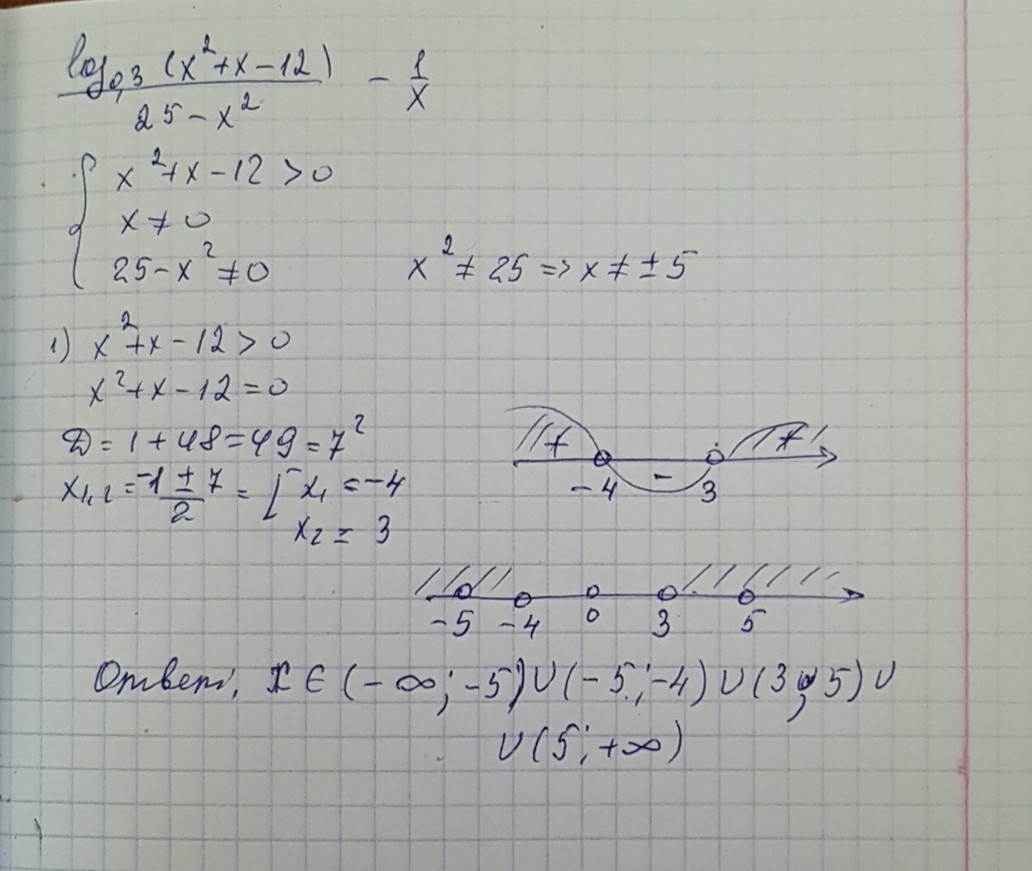 log₀,₃ (x²+x-12) / 25-x² - 1/x
{ x²+x-12>0
x≠0
25-x²≠0 x²≠25=>x≠±5
1) x²+x-12>0
x²+x-12=0
D=1+48=49=7²
+ - +
-4 3
x₁,₂=(-1±7)/2=[x₁=-4
x₂=3
-5 -4 0 3 5
Ответ, x∈(-∞;-5)∪(-5;-4)∪(3;5)∪
∪(5;+∞)